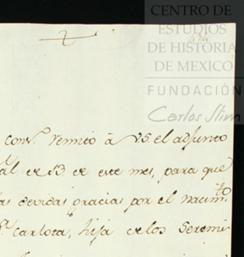 CENTRO DE
ESTUDIOS
DE HISTORIA
DE MEXICO
FUNDACIÓN
Carlos Slim
con.^e remito à VS. el adjunto
al de 13 de este mes, para que
las devidas gracias por el nacim.^to
Carlota, hija de los Sereni